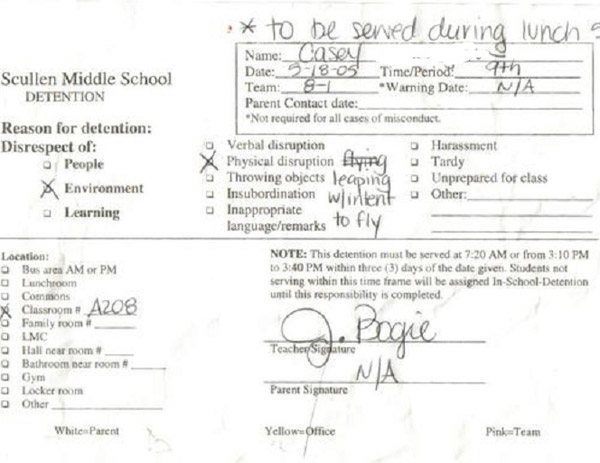 * to be served during lunch
Name: Casey
Scullen Middle School
DETENTION
Date: 5-18-05 Time/Period: 9th
Team: 8-1 *Warning Date: N/A
Parent Contact date:
*Not required for all cases of misconduct.
Reason for detention:
Disrespect of:
People
Environment
Learning
Verbal disruption
Physical disruption flying
Throwing objects leaping
Insubordination w/intent
Inappropriate
language/remarks to fly
Harassment
Tardy
Unprepared for class
Other:
Location:
Bus area AM or PM
Lunchroom
Commons
Classroom # A208
Family room #
LMC
Hall near room #
Bathroom near room #
Gym
Locker room
Other
NOTE: This detention must be served at 7:20 AM or from 3:10 PM
to 3:40 PM within three (3) days of the date given. Students not
serving within this time frame will be assigned In-School-Detention
until this responsibility is completed.
J. Bogie
Teacher Signature
N/A
Parent Signature
White=Parent Yellow=Office Pink=Team